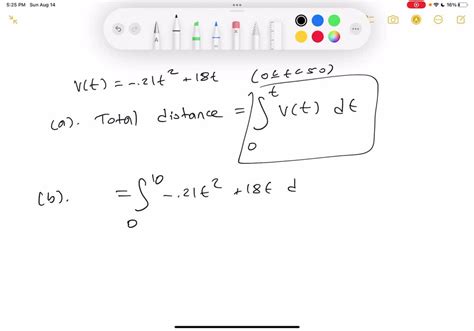 5:25 PM Sun Aug 14
16%
v(t) = -.21t² + 18t (0≤t≤50)
(a). Total distance = ∫₀ᵗ v(t) dt
(b). = ∫₀¹⁰ -.21t² + 18t d